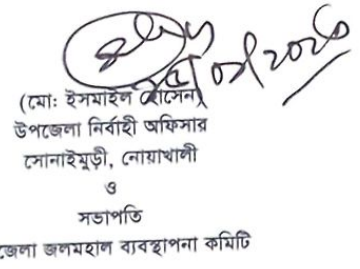 (মো: ইসমাইল হোসেন)
উপজেলা নির্বাহী অফিসার
সোনাইমুড়ী, নোয়াখালী
ও
সভাপতি
জেলা জলমহাল ব্যবস্থাপনা কমিটি